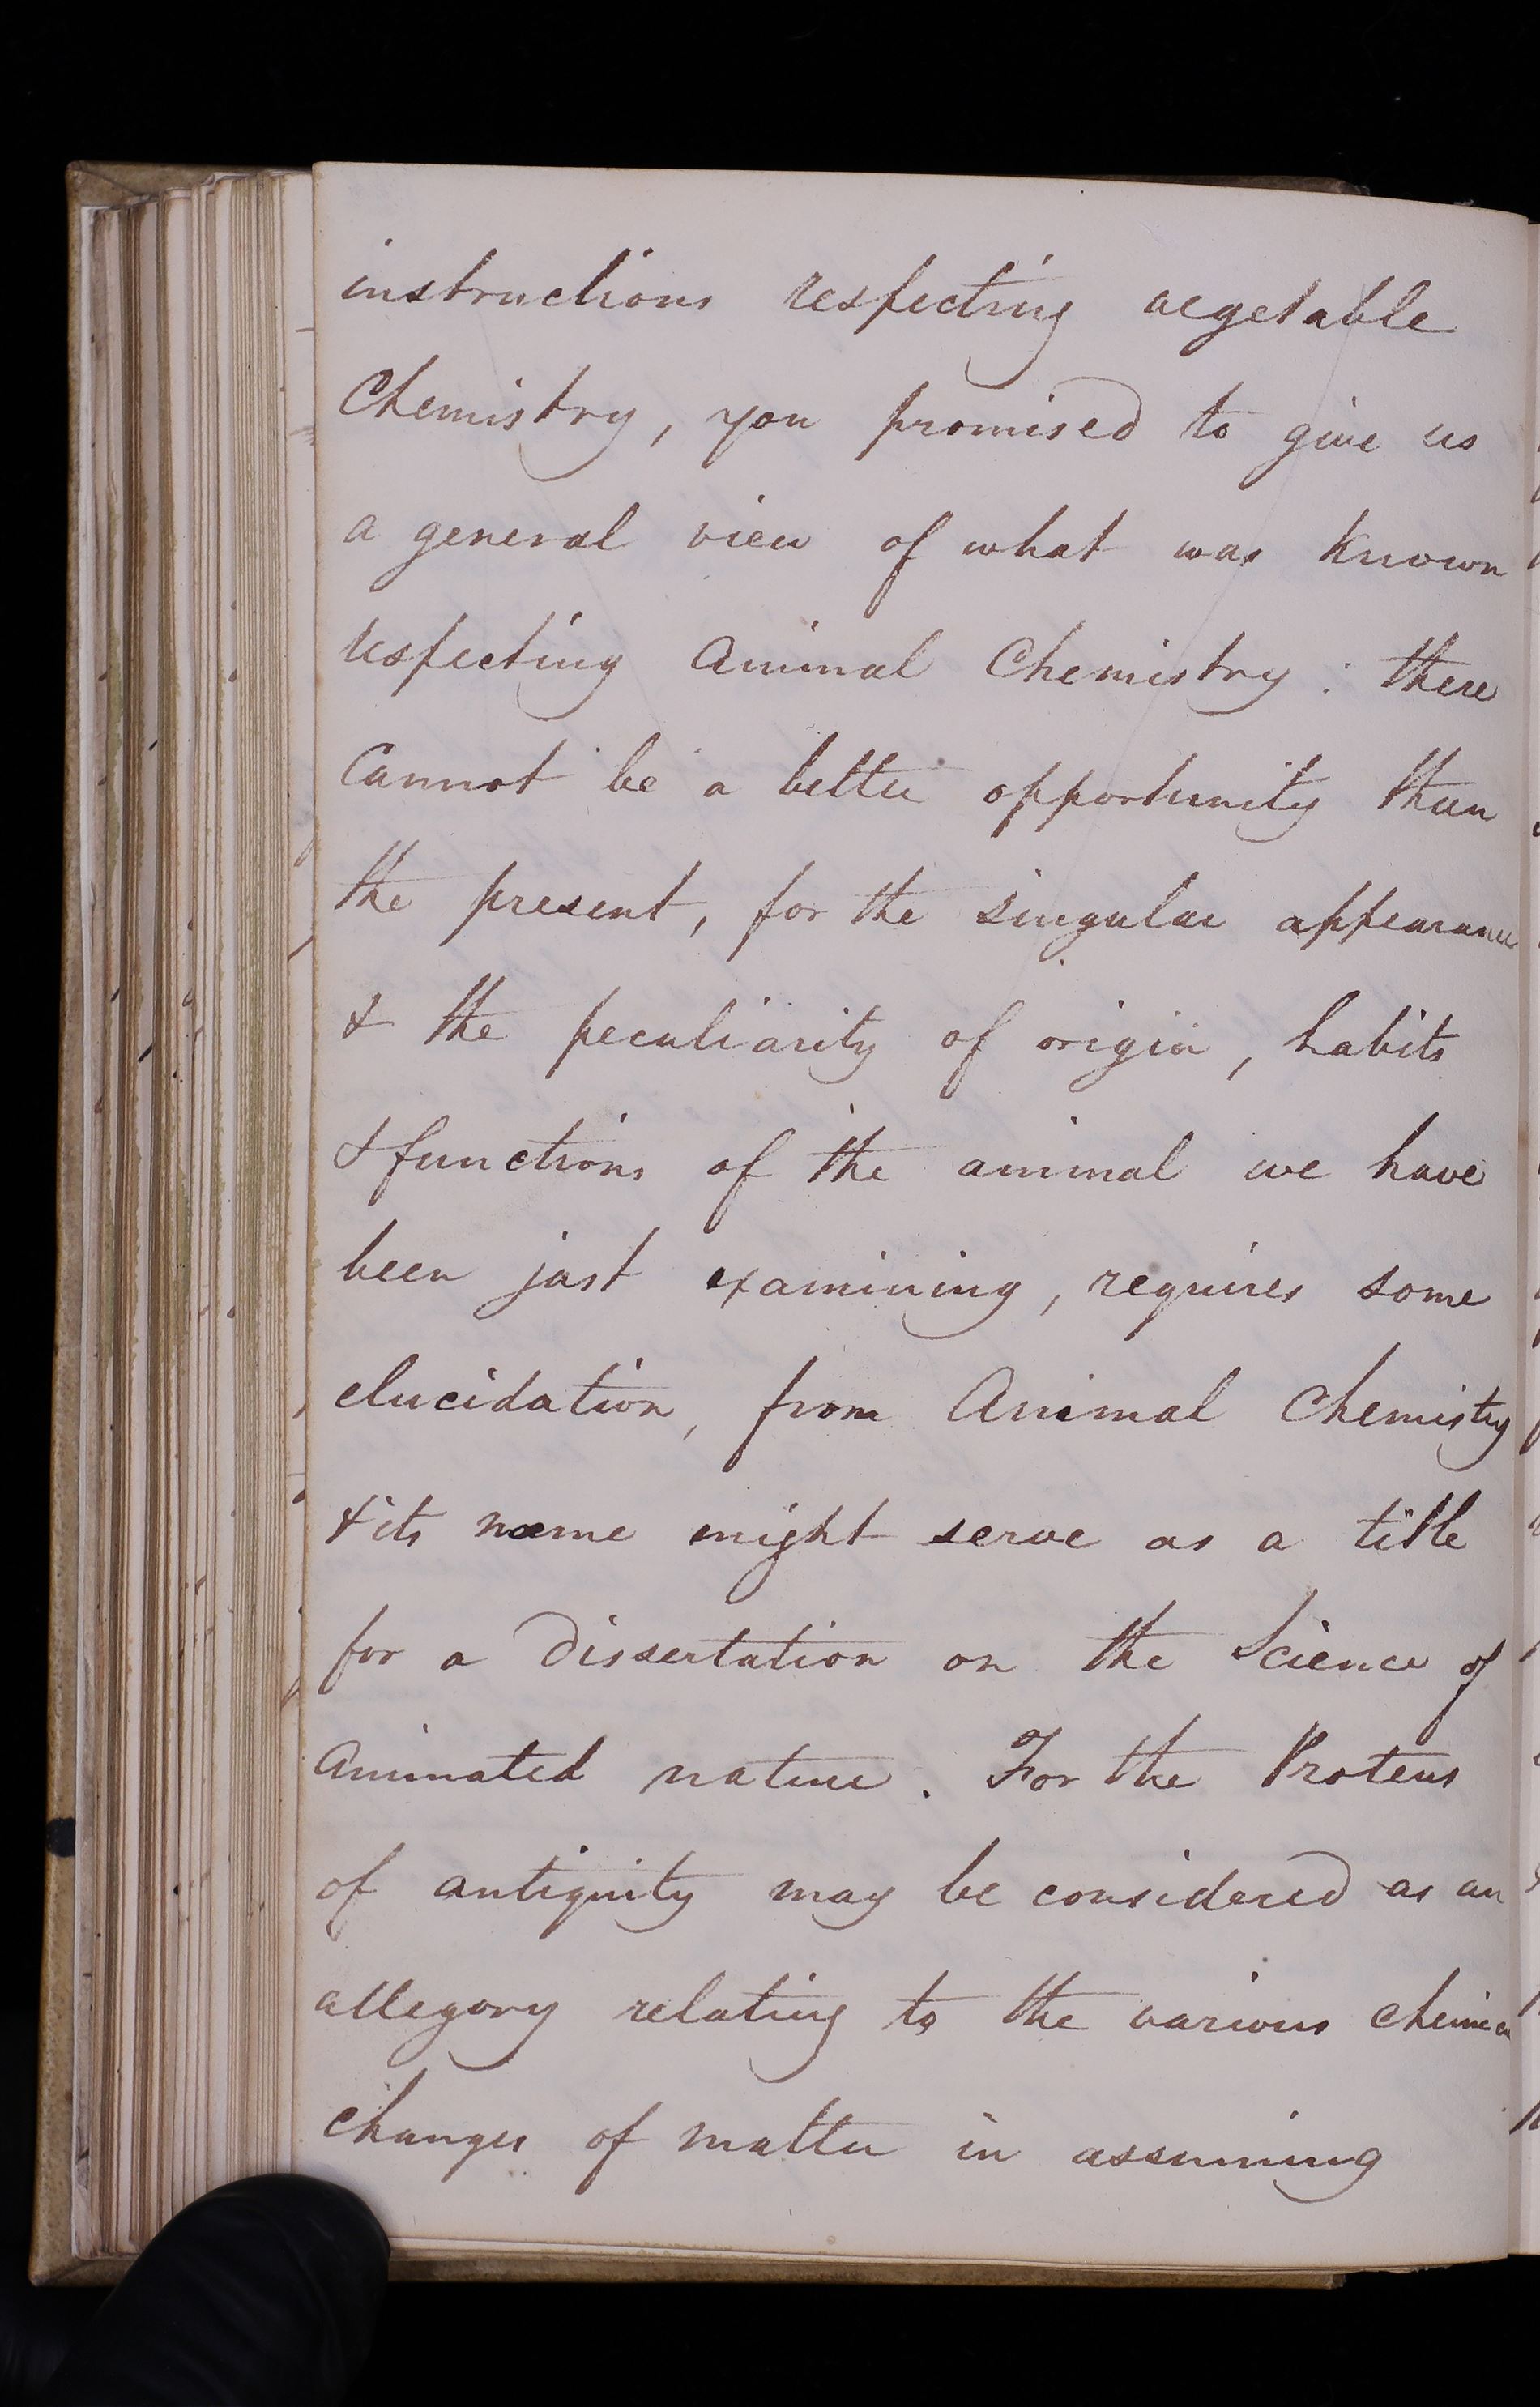 instructions respecting vegetable
Chemistry, you promised to give us
a general view of what was known
respecting Animal Chemistry : there
Cannot be a better opportunity than
the present, for the singular appearance
& the peculiarity of origin, habits
& functions of the animal we have
been just examining, requires some
elucidation, from Animal Chemistry
& its name might serve as a title
for a Dissertation on the Science of
Animated nature. For the Proteus
of antiquity may be considered as an
allegory relating to the various chemical
changes of matter in assuming